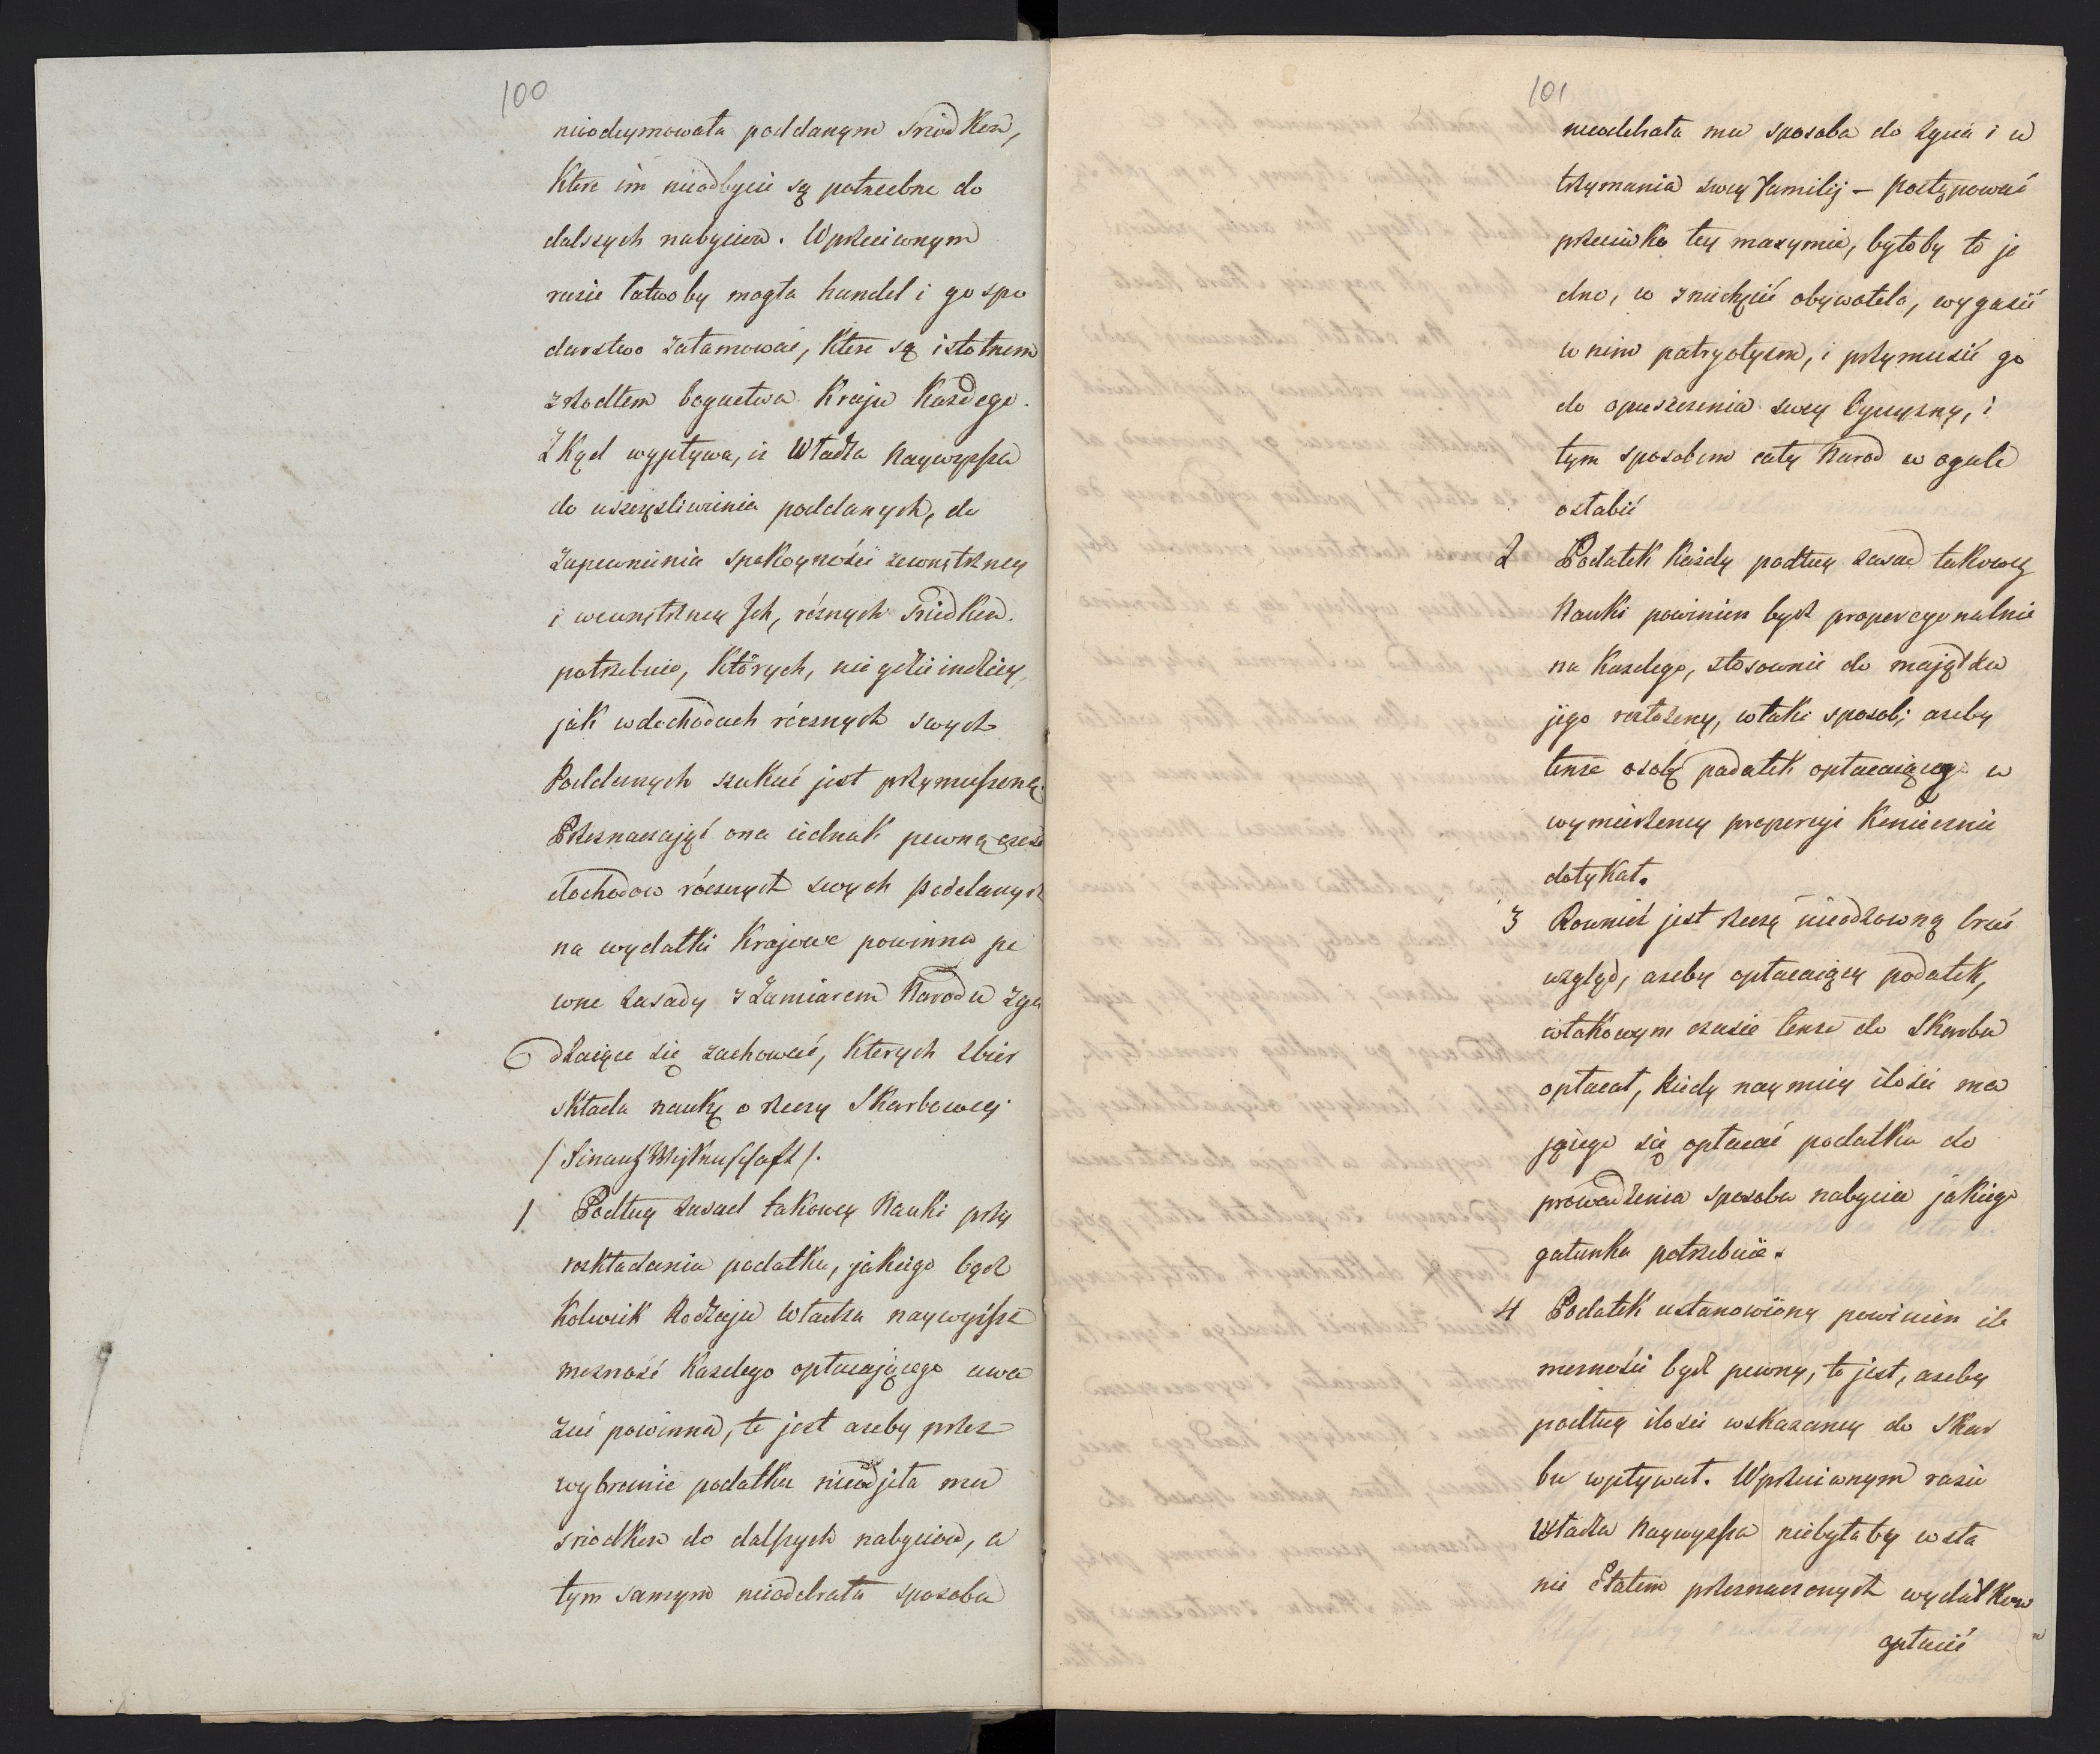 100
nieodeymowała poddanym sriodkow,
Ktore im nieodbycie są potrzebne do
dalszych nabyciow. Wprzeciwnym
razie łatwoby mogła handel i gospo
darstwo zatamować, Ktore są istotnem
zrzodłem bogactwa Kraju Każdego.
Zkąd wypływa, iż Władza Naywyższa
do uszczęsliwienia poddanych, do
zapewnienia spokoyności zewnętrzney
i wewnętrzney Ich, rożnych sriodkow
potrzebuie, Których, nie gdzieindziey,
jak wdochodach rócznych swych
Poddanych szukać jest przymuszoną.
Przeznaczając ona iednak pewną częsc
dochodow rócznych swych poddanych
na wydatki Krajowe powinna pe
wne zasady z Zamiarem Narodu zga
dzaiące się zachować, Ktorych zbior
składa naukę o rzeczy Skarbowey
/ Finanz Wissenschaft /.
1 Podług zasad takowey Nauki przy
rozkładaniu podatku, jakiego bądz
Kolwiek Rodzaju władza naywyższa
możność Każdego opłacającego uwa
żać powinna, to jest ażeby przez
wybranie podatku nieodjęła mu
sriodkow do dalszych nabyciow, a
tym samym nieodebrała sposobu
101
nieodebrała mu sposobu do życia i u
trzymania swey Familij – postępować
przeciwko tey maxymie, byłoby to je
dno, co zniechęcić obywatela, wygasić
w nim patryotyzm, i przymusić go
do opuszczenia swey Oyczyzny, i
tym sposobem cały Narod w ogule
osłabić
2 Podatek Każdy podług zasad takowey
Nauki powinien bydz proporcyonalnie
na Każdego, stosownie do majątku
jego rozłożony, wtaki sposob; ażeby
tenże osobę podatek opłacaiącego w
wymierzoney proporcyi Koniecznie
dotykał.
3 Rownież jest rzeczą nieodzowną brać
wzgląd, ażeby opłacaiący podatek,
wtakowym czasie tenże do Skarbu
opłacał, Kiedy naymniey ilości ma
jącego się opłacać podatku do
prowadzenia sposobu nabycia jakiego
gatunku potrzebuie.
4 Podatek ustanowiony powinien ile
możności bydź pewny, to jest, ażeby
podług ilosci wskazaney do Skar
bu wpływał. Wprzeciwnym razie
Władza Naywyższa niebyłaby wsta
nie Etatem przeznaczonych wydatkow
opłacić